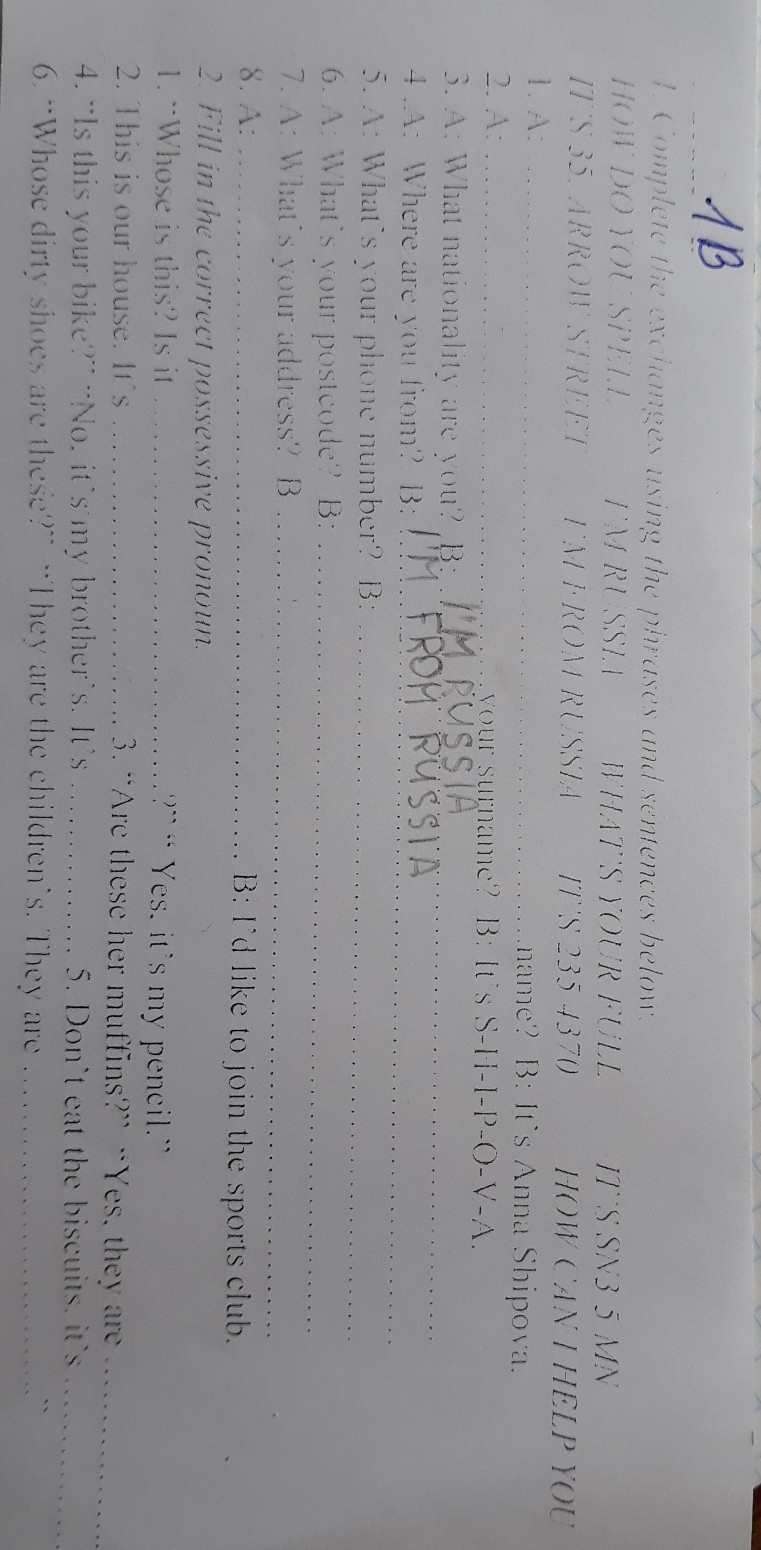 1B
1. Complete the exchanges using the phrases and sentences below.
HOW DO YOU SPELL I'M RUSSIA WHAT'S YOUR FULL IT'S SN3 5 MN
IT'S 35, ARROW STREET I'M FROM RUSSIA IT'S 235 4370 HOW CAN I HELP YOU
1. A: ..................................................name? B: It`s Anna Shipova.
2. A: ..................................................your surname? B: It`s S-H-I-P-O-V-A.
3. A: What nationality are you? B: I'M RUSSIA
4 .A: Where are you from? B: I'M FROM RUSSIA
5. A: What`s your phone number? B: ..................................................
6. A: What`s your postcode? B: ..................................................
7. A: What`s your address? B ..................................................
8. A: .................................................. B: I'd like to join the sports club.
2. Fill in the correct possessive pronoun
1. “Whose is this? Is it ..................................................?” “ Yes, it`s my pencil.”
2. This is our house. It`s .............................. 3. “Are these her muffins?” “Yes, they are ....................
4. “Is this your bike?” “No, it`s my brother`s. It`s .................... 5. Don`t eat the biscuits, it`s ....................
6. “Whose dirty shoes are these?” “They are the children`s. They are ........................................”